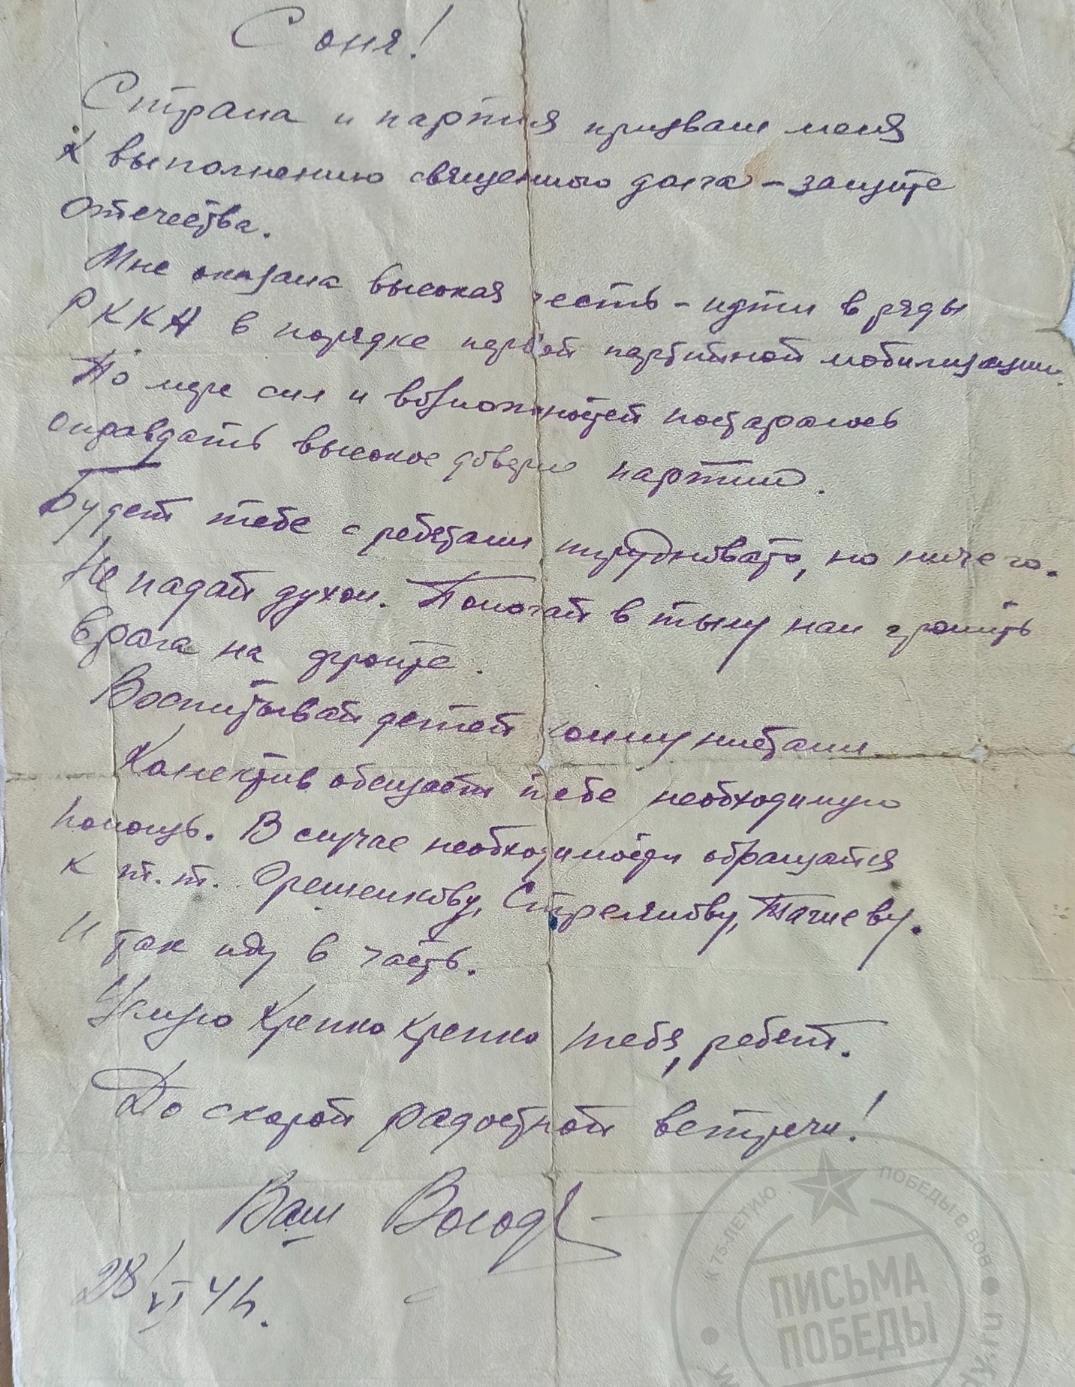 Соня!
Страна и партия призвали меня
к выполнению священного долга – защите
отечества.
Мне оказана высокая честь – идти в ряды
РККА в порядке первой партийной мобилизации.
По мере сил и возможностей постараюсь
оправдать высокое доверие партии.
Будет тебе с ребятами трудновато, но ничего.
Не падай духом. Помогай в тылу нам громить
врага на фронте.
Воспитывай детей коммунистами.
Колектив обещает тебе необходимую
помощь. В случае необходимости обращайся
к т.т. Орешенкову, Стрелкову, Тагиеву.
И так иду в часть.
Целую крепко крепко тебя, ребят.
До скорой радостной встречи!
Ваш Володя
28/VI 41г.
К 75-ЛЕТИЮ ПОБЕДЫ В ВОВ
ПИСЬМА
ПОБЕДЫ